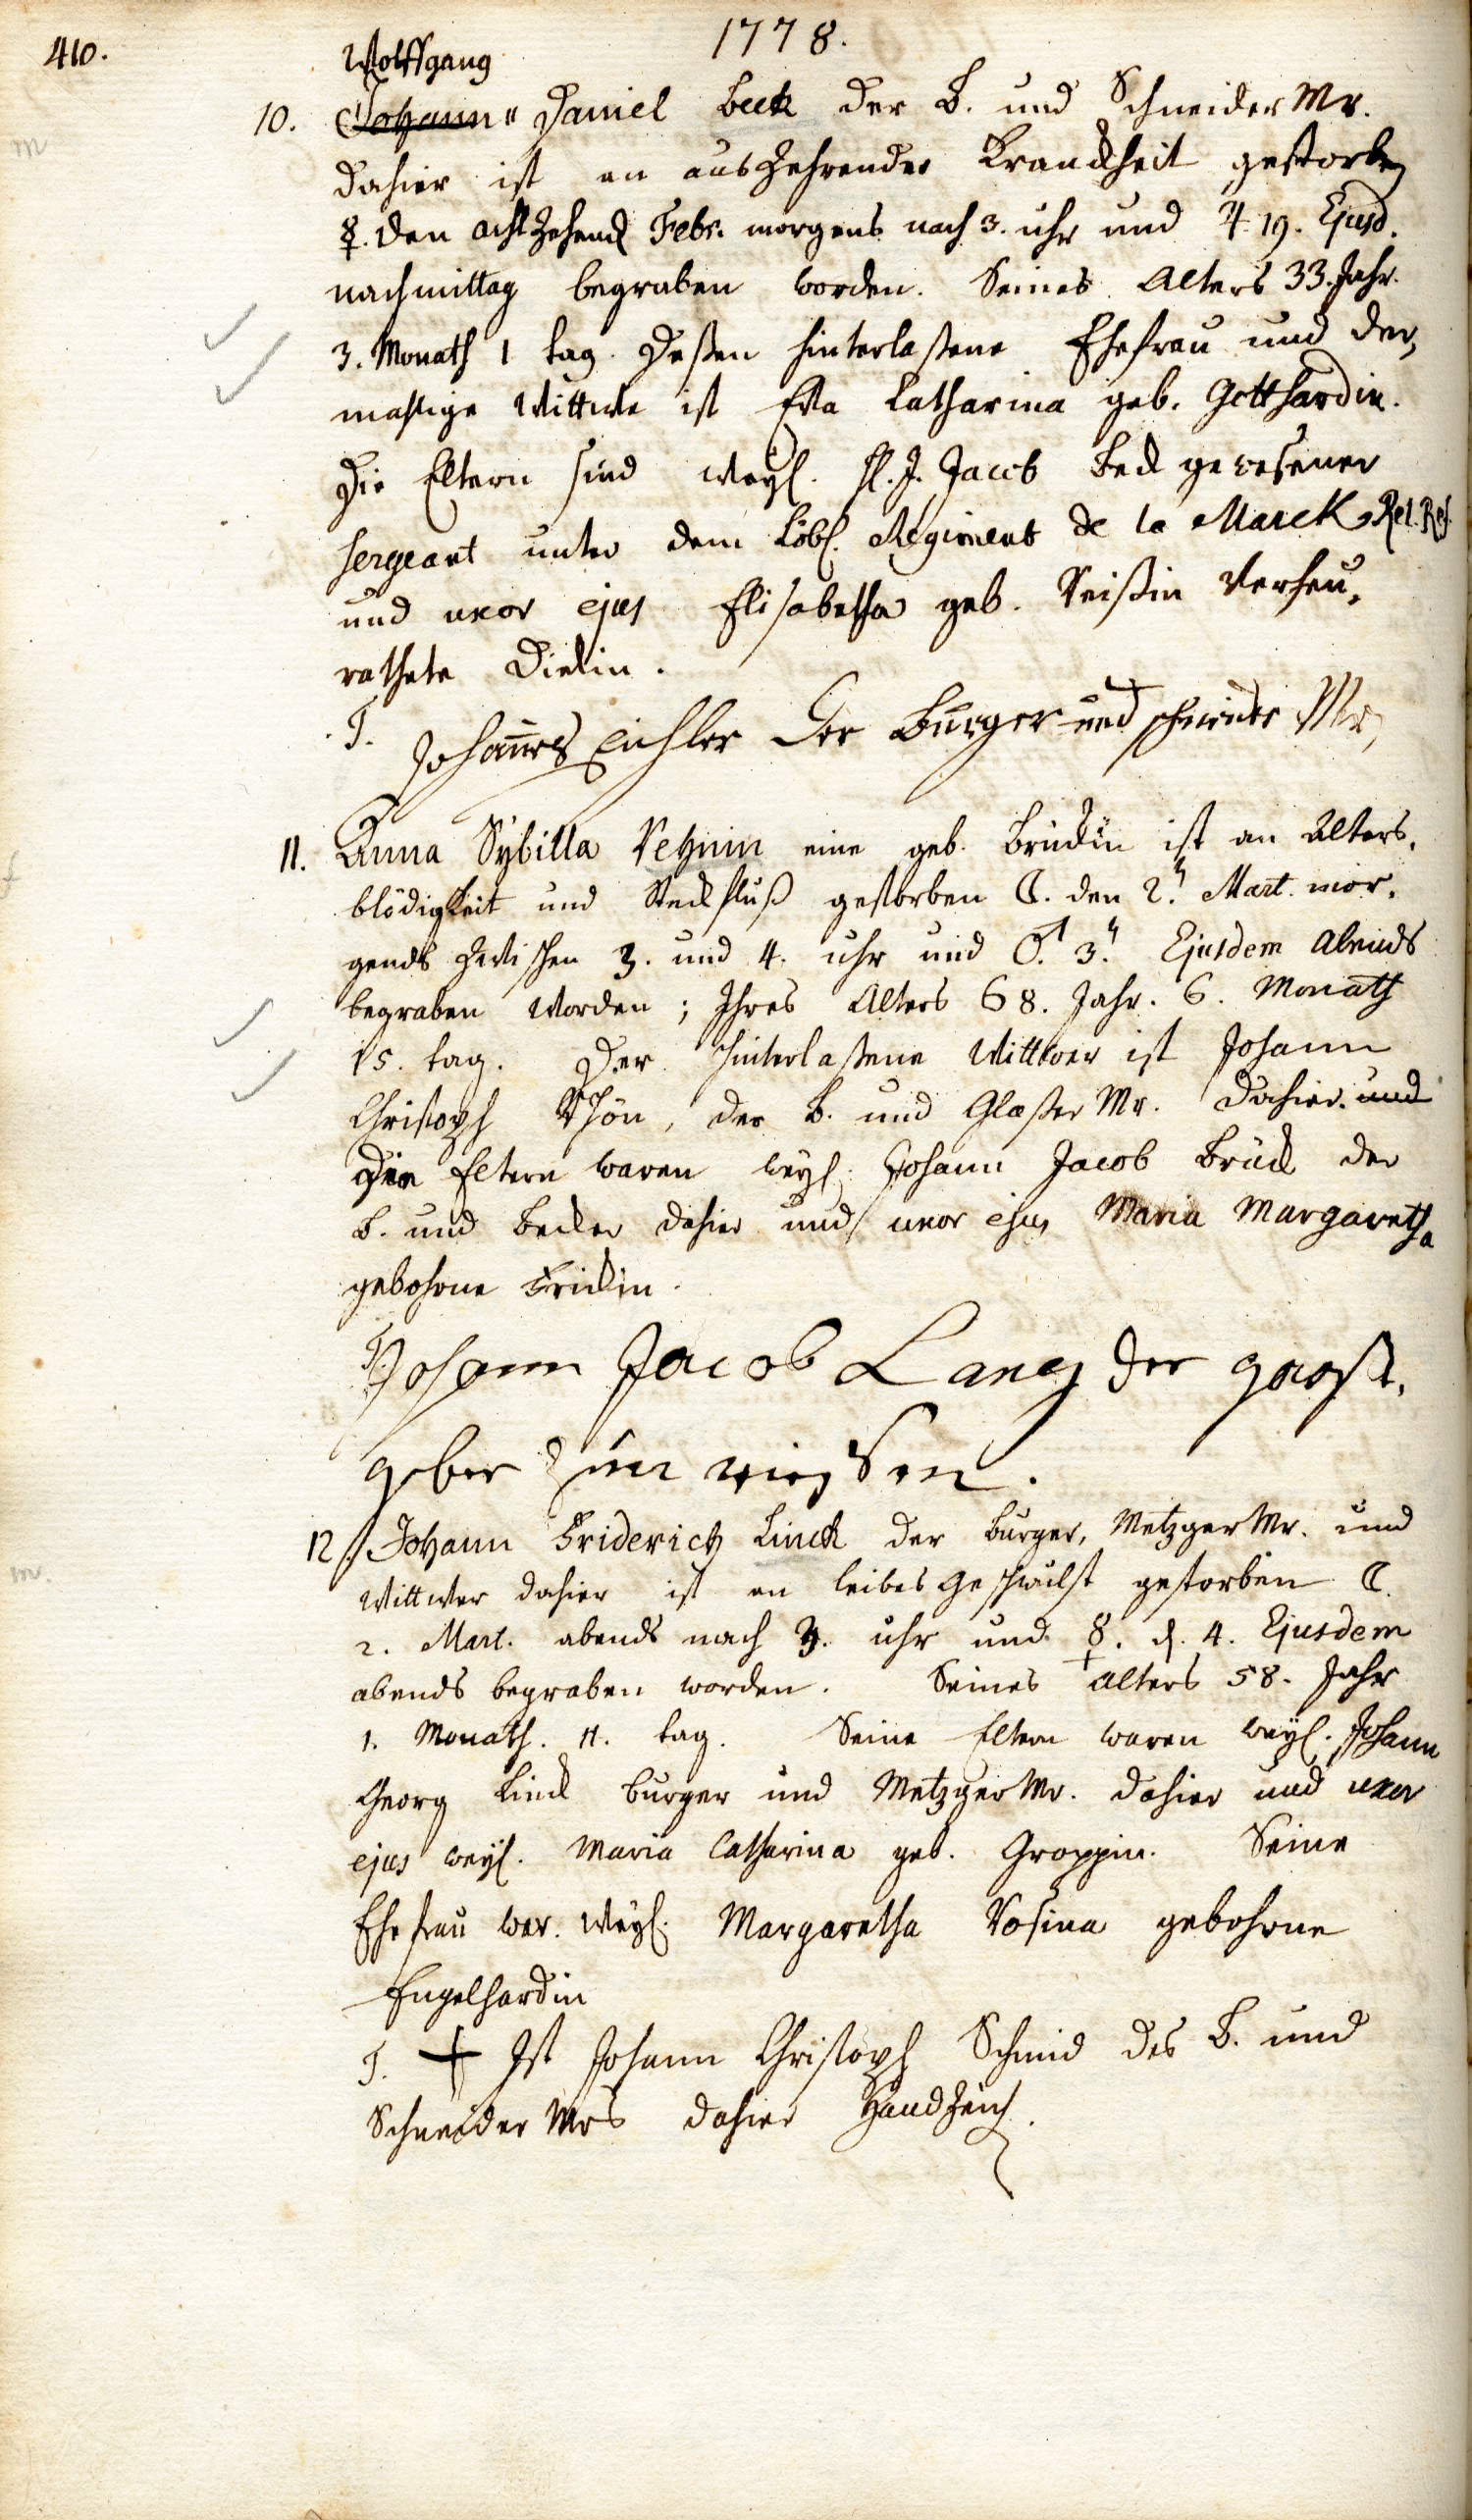 410.
1778.
Wolffgang
10. Johann Daniel Beck der B. und Schneider Mr.
dahier ist an auszehrender Kranckheit gestorben
☿. den achtzehend Febr. morgens nach 3. uhr und ♃ 19. Ejusd.
nachmittag begraben worden. Seines Alters 33. Jahr.
3. Monath 1 tag. Deßen hinterlaßene Ehefrau und der„
mahlige Wittwe ist Eva Catharina geb. Gotthardin.
Die Eltern sind weyl. H. J. Jacob Beck gewesener
Sergeant unter dem Löbl. Regiment de la Marck Rel. Ref.
und uxor ejus Elisabetha geb. Reißin verheu„
rathete Dickin.
T. Johannes Eichler der Burger und schneider Mr,
11. Anna Sybilla Rehnin eine geb. Brückin ist an Alters„
blödigkeit und Steckfluß gestorben ☾. den 2.ⁿ Mart. mor„
gends zwischen 3. und 4. uhr und ♂. 3.ⁿ Ejusdem Abends
begraben worden; Ihres Alters 68. Jahr. 6. Monath
15. tag. Der hinterlaßene Wittwer ist Johann
Christoph Rhön, der B. und Glaßer Mr. dahier und
Die Eltern waren weyl. Johann Jacob Brück der
B. und Becker dahier und uxor ejus Maria Margaretha
gebohrne Frickin.
T. Johann Jacob Lang der gast„
geber zum riesen.
12. Johann Friderich Linck der Burger, Metzger Mr. und
Wittwer dahier ist an leibes Geschwulst gestorben ☾.
2. Mart. abends nach 3. uhr und ☿. d. 4. Ejusdem
abends begraben worden. Seines Alters 58. Jahr
1. Monath. 11. tag. Seine Eltern waren weyl. Johann
Georg Linck burger und Metzger Mr. dahier und uxor
ejus weyl. Maria Catharina geb. Groppin. Seine
Ehefrau war weyl. Margaretha Rosina gebohrne
Engelhardin
T. + Ist Johann Christoph Schmid des B. und
Schneider Mrs dahier Handzeich.